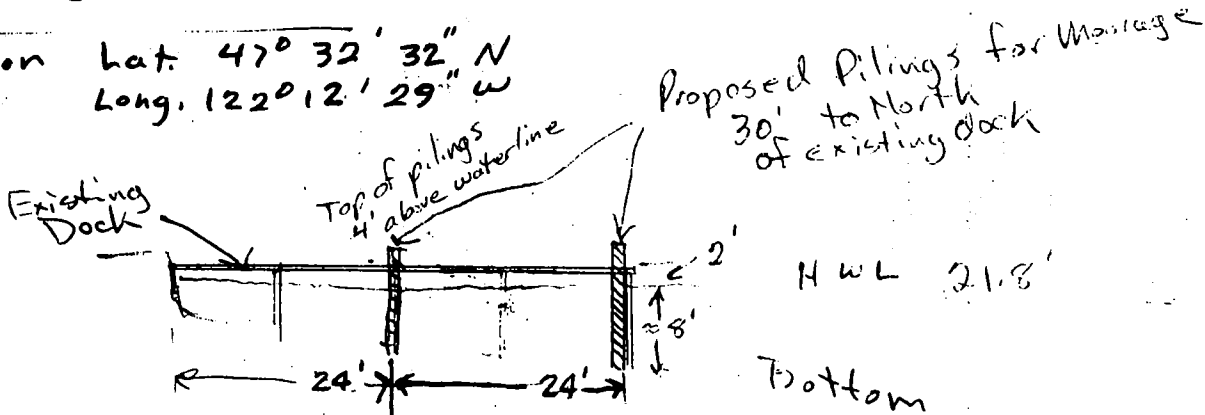 on Lat. 47° 32' 32" N
Long. 122° 12' 29" W
Proposed Pilings for Moorage
30' to North
of existing dock
Top of pilings
4' above waterline
Existing
Dock
2'
HWL 21.8'
≈8'
24' 24'
Bottom